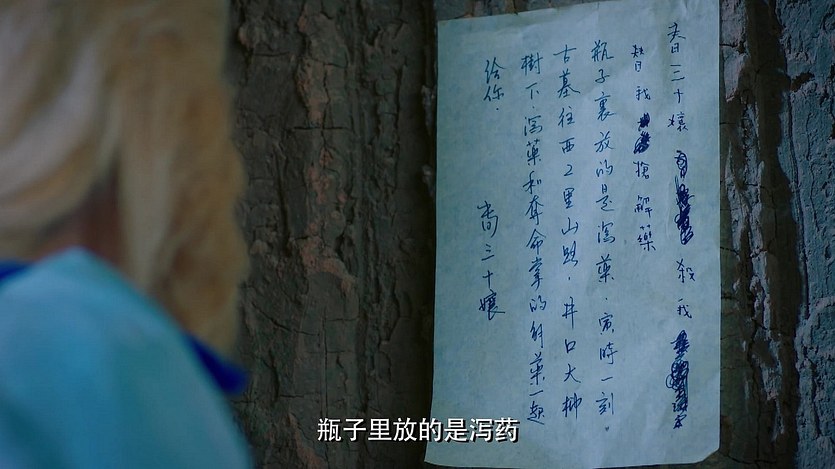 春三十孃 殺我
替我 搶解藥
瓶子裏放的是瀉藥.寅時一刻。
古墓往西2里山路.井口大柳
樹下.瀉藥和奪命掌的解藥一起
給你.
三十孃
瓶子里放的是泻药